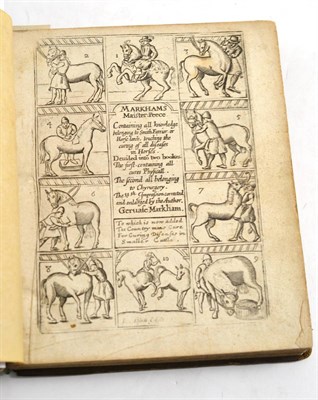 2
4
6
7
8
10
9
MARKHAMS
Maister-Peece
Containing all knowledge
belonging to Smith Farrier or
Horse-leech, touching the
curing of all diseases
in Horses.
Devided into two bookes
The first containing all
cures Physicall
The second all belonging
to Chyrurgery
The Impression corrected
and by the Author,
Gervase Markham.
To which is now added
The Country-mans Care
For Curing Diseases in
Smaller Cattle